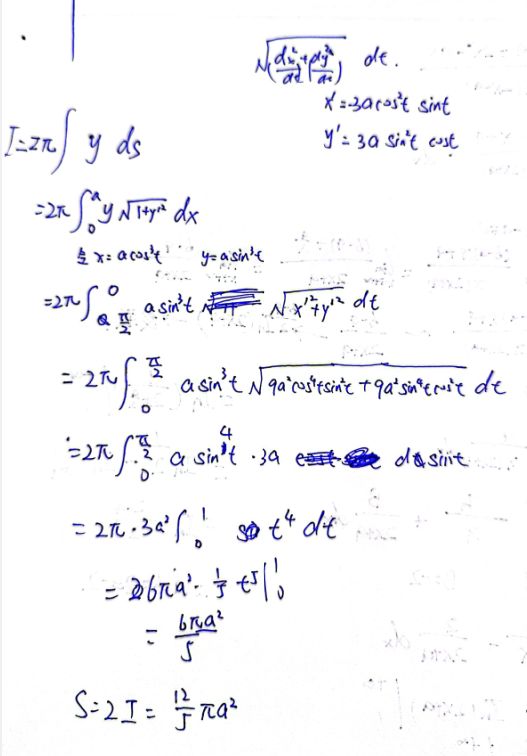 √((dx/dt)² + (dy/dt)²) dt.
x' = -3a cos²t sint
y' = 3a sin²t cost
I = 2π∫ y ds
= 2π∫₀ᵃ y √(1+y'²) dx
令 x = a cos³t y = a sin³t
= 2π∫_{π/2}^{0} a sin³t √(x'²+y'²) dt
= 2π∫₀^{π/2} a sin³t √(9a²cos⁴t sin²t + 9a² sin⁴t cos²t) dt
= 2π∫₀^{π/2} a sin⁴t · 3a d sint
= 2π · 3a² ∫₀¹ t⁴ dt
= 6πa² · 1/5 t⁵ |₀¹
= 6πa²/5
S = 2I = 12/5 πa²